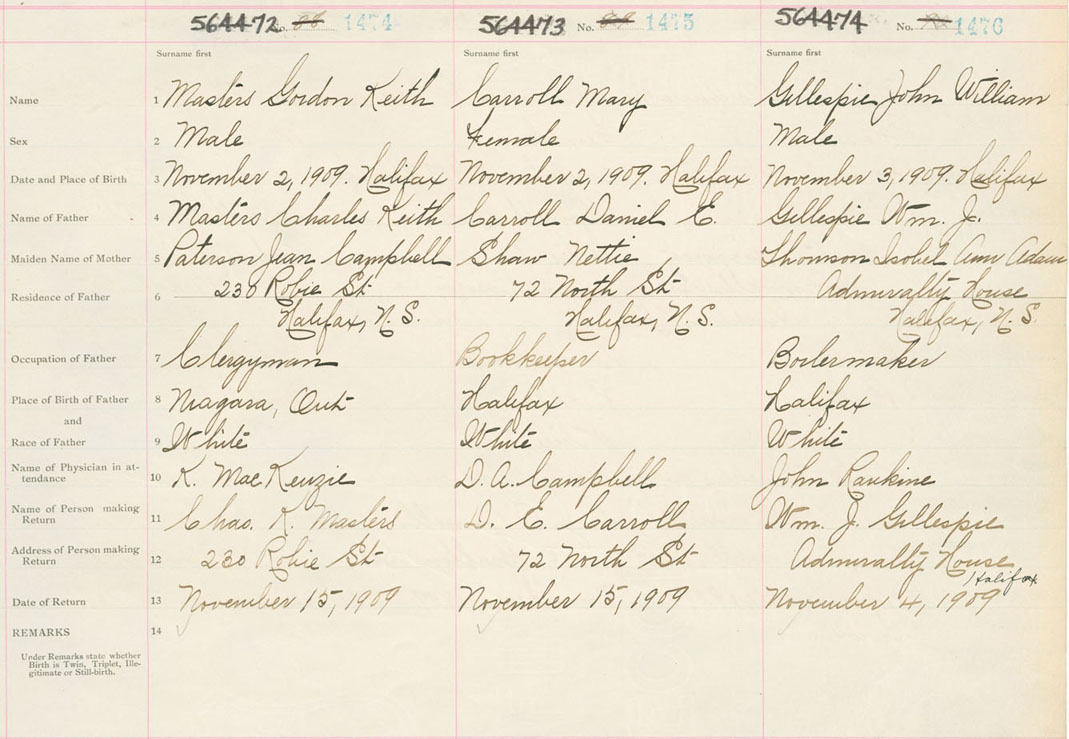 564472 No. 1474 564473 No. 1475 564474 No. 1476
Surname first Surname first Surname first
Name 1 Masters Gordon Keith Carroll Mary Gillespie John William
Sex 2 Male Female Male
Date and Place of Birth 3 November 2, 1909. Halifax November 2, 1909. Halifax November 3, 1909. Halifax
Name of Father 4 Masters Charles Keith Carroll Daniel E. Gillespie Wm. J.
Maiden Name of Mother 5 Paterson Jean Campbell Shaw Nettie Thomson Isobel Ann Adam
Residence of Father 6 230 Robie St. 72 North St. Admiralty House
Halifax, N.S. Halifax, N.S. Halifax, N.S.
Occupation of Father 7 Clergyman Bookkeeper Boilermaker
Place of Birth of Father 8 Niagara, Ont. Halifax Halifax
and
Race of Father 9 White White White
Name of Physician in at-
tendance 10 K. MacKenzie D. A. Campbell John Rankine
Name of Person making
Return 11 Chas. K. Masters D. E. Carroll Wm. J. Gillespie
Address of Person making
Return 12 230 Robie St. 72 North St. Admiralty House
Halifax
Date of Return 13 November 15, 1909 November 15, 1909 November 4, 1909
REMARKS 14
Under Remarks state whether
Birth is Twin, Triplet, Ille-
gitimate or Still-birth.